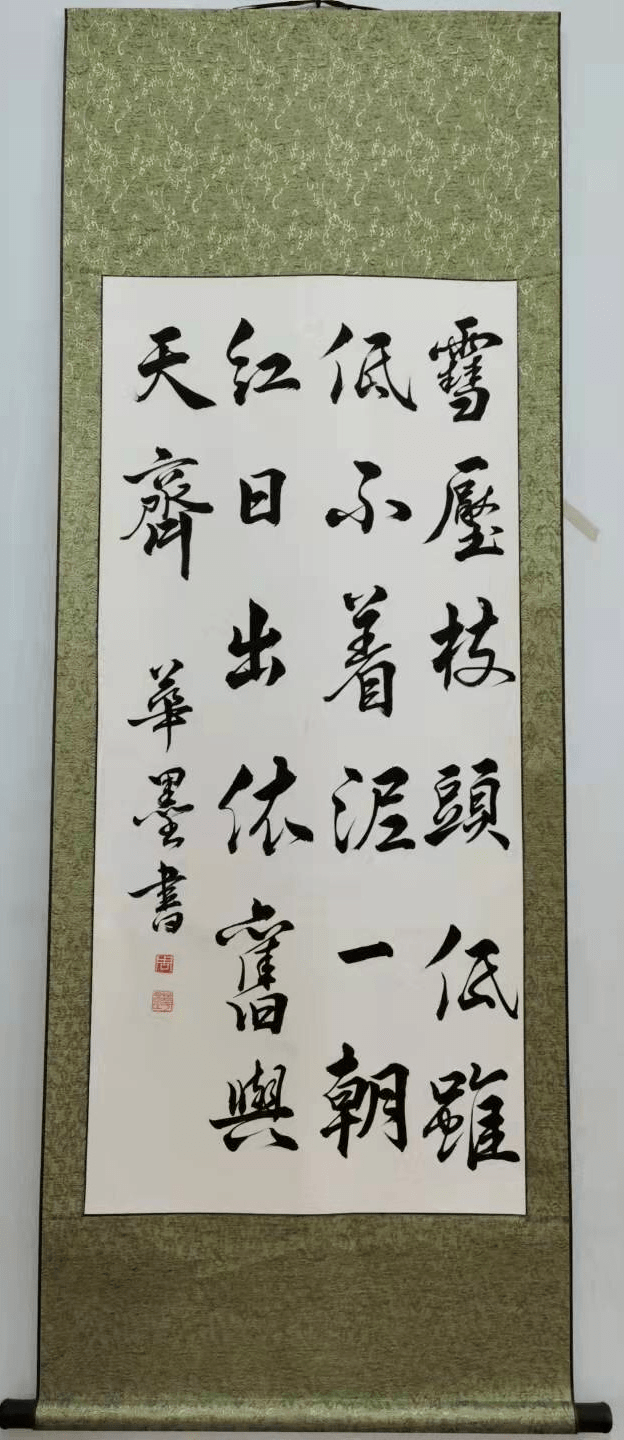 雪壓枝頭低雖
低不着泥一朝
紅日出依舊與
天齊 華墨書